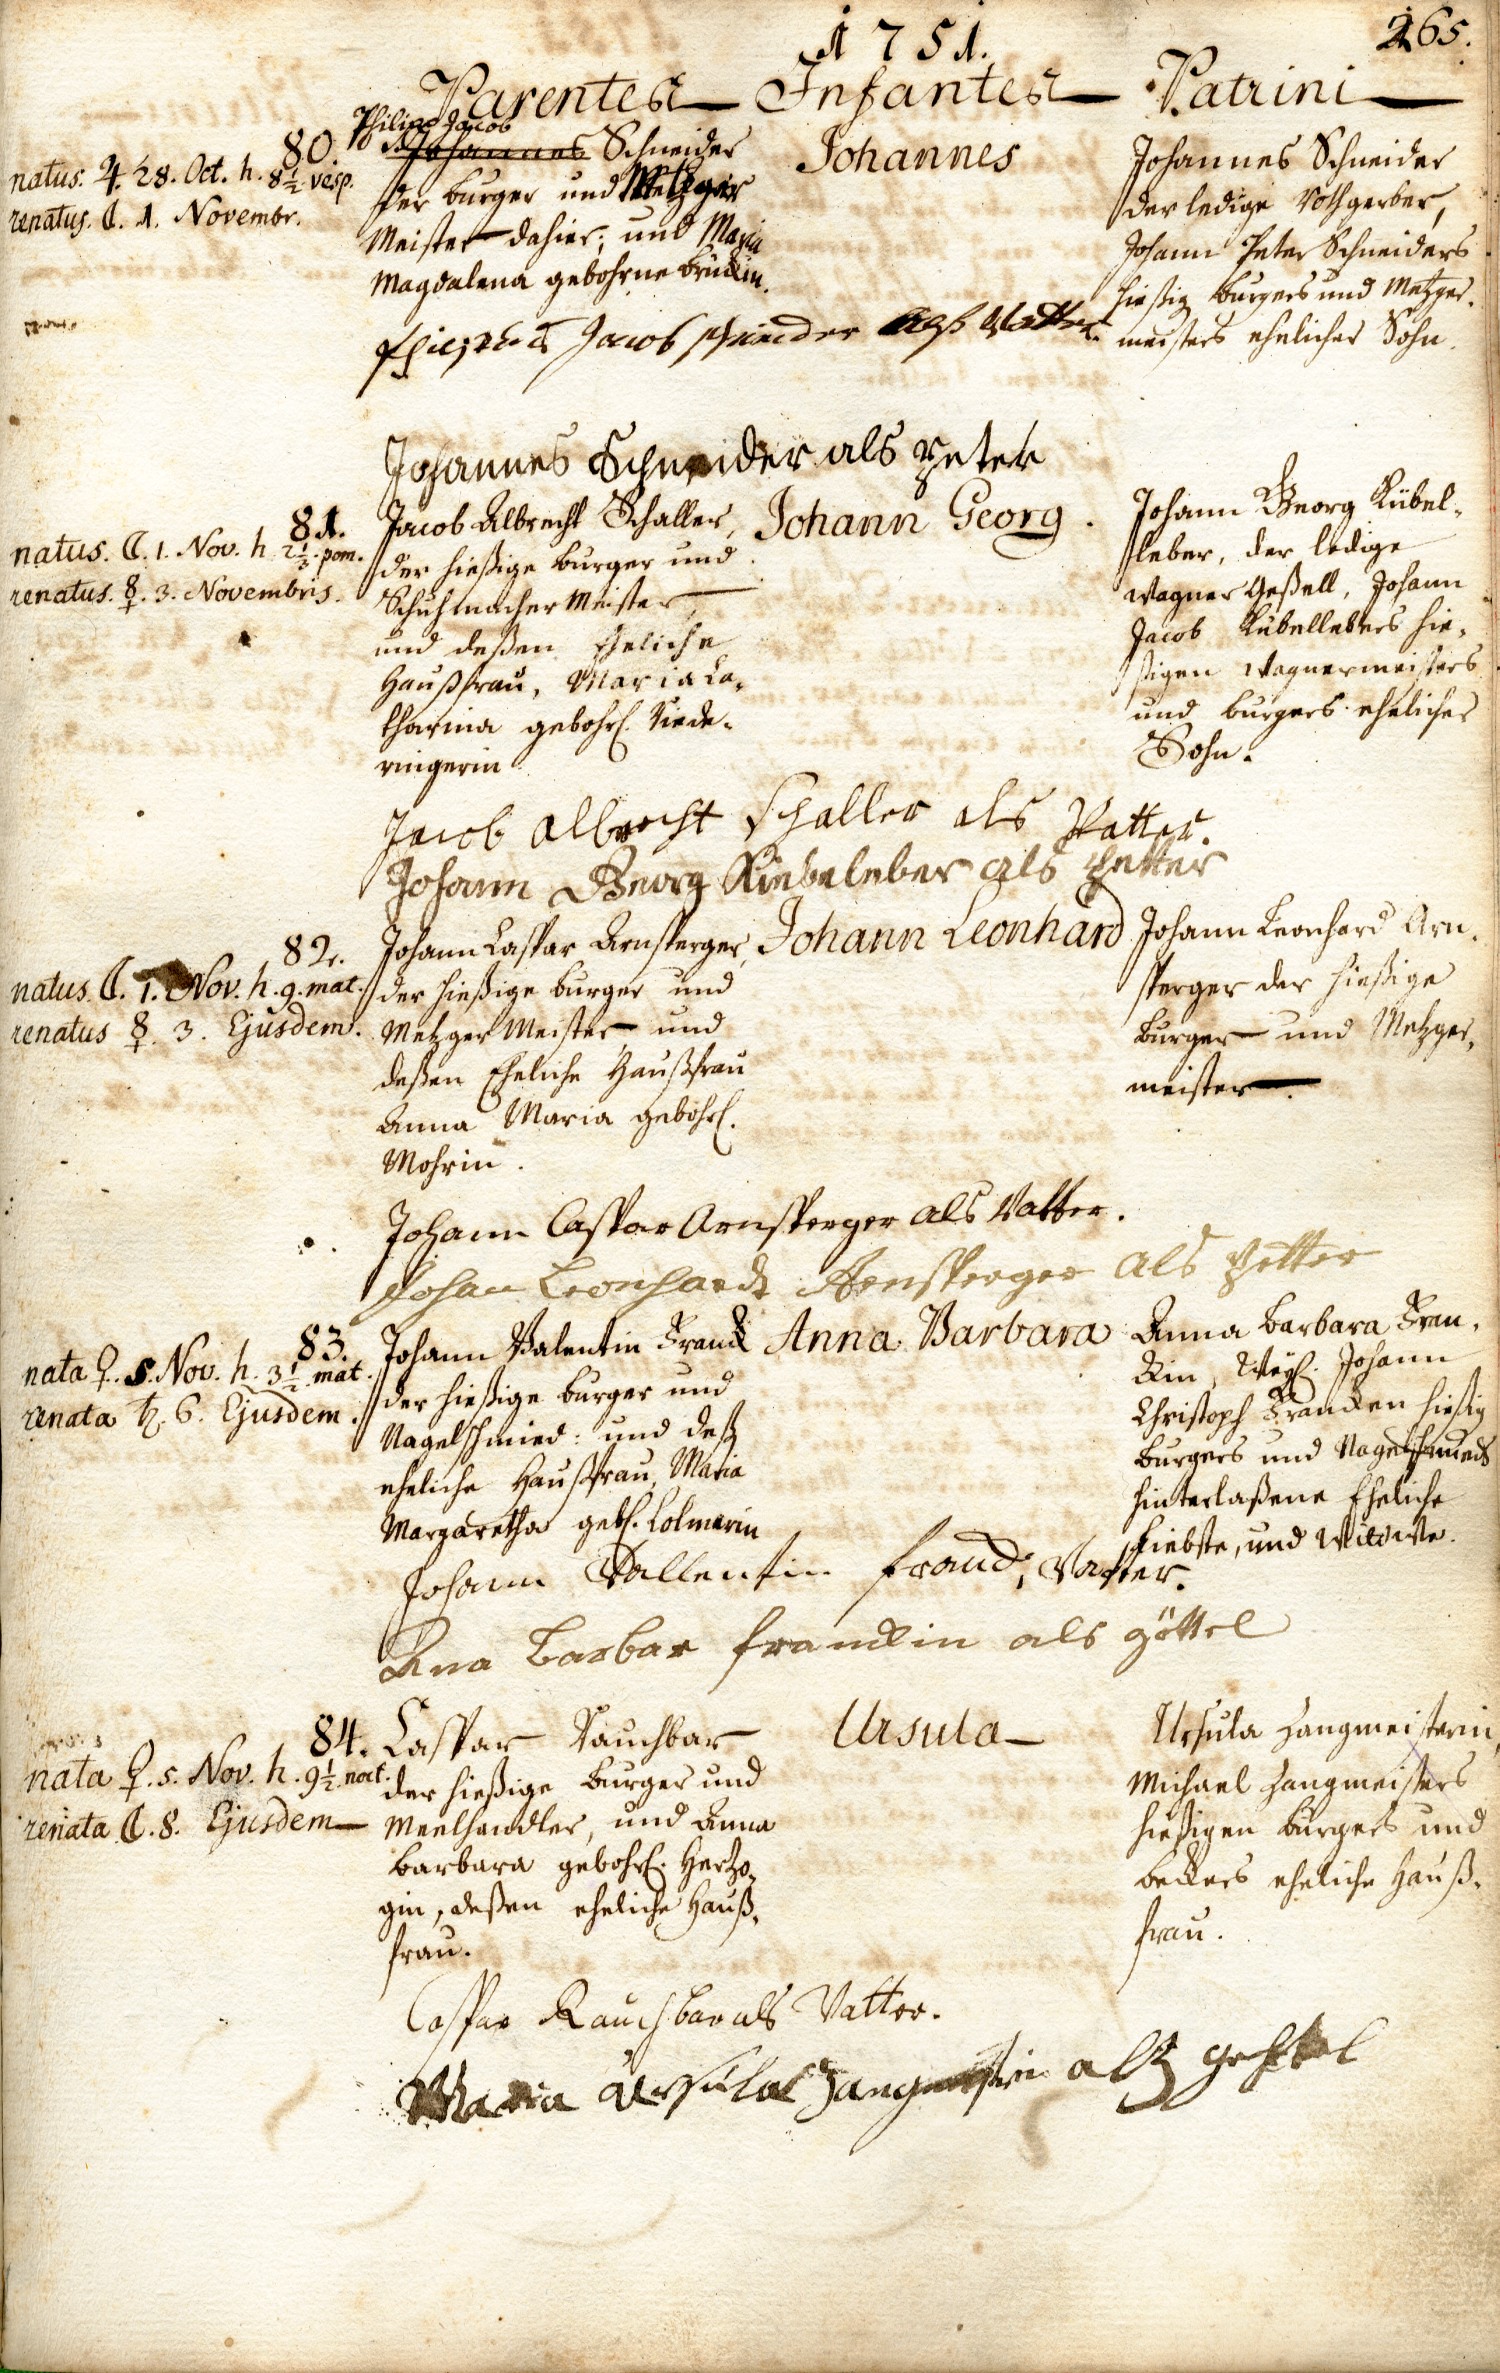 1751.
265.
Parentes Infantes Patrini
80.
natus. ♃. 28. Oct. h. 8½ vesp.
renatus. ☾. 1. Novembr.
Philipp Jacob
Johannes Schneider
der burger und Metzger
Meister dahier; und Maria
Magdalena gebohrne
Johannes
Johannes Schneider
der ledige Rothgerber,
Johann Peter Schneiders
hießig burgers und Metzger-
meisters ehelicher Sohn.
Jacob schneider alß Vatter
Johannes Schneider als Peter
81.
natus. ☾. 1. Nov. h. 2½. pom.
renatus. ☿. 3. Novembris.
Jacob Albrecht Schaller,
der hießige burger und
Schuhmacher Meister,
und deßen Eheliche
Haußfrau, Maria Ca-
tharina gebohr. Niede-
ringerin
Johann Georg.
Johann Georg Kübel-
leber, der ledige
Wagner Gesell, Johann
Jacob Kübellebers hie-
ßigen Wagnermeisters
und burgers ehelicher
Sohn.
Jacob Albrecht Schaller als Vatter.
Johann Georg Kiebeleber als Petter
82.
natus. ☾. 1. Nov. h. 9. mat.
renatus ☿. 3. Ejusdem.
Johann Caspar Arnsperger,
der hießige burger und
Metzger Meister und
deßen Eheliche Haußfrau
Anna Maria gebohr.
Mohrin.
Johann Leonhard
Johann Leonhard Arn-
sperger der hießige
burger und Metzger-
meister.
Johann Caspar Arnsperger als Vatter.
Johan Leonhardt Arnsperger als Petter
83.
nata ♀. 5. Nov. h. 3½ mat.
renata ♄. 6. Ejusdem.
Johann Valentin Franck
der hießige burger und
Nagelschmied: und deß
eheliche Haußfrau, Maria
Margaretha geb. Colmerin
Anna Barbara
Anna Barbara Fran-
ckin, Weyl. Johann
Christoph Francken hießig
burgers und Nagelschmieds
hinterlaßene Eheliche
Liebste, und Wittwe.
Johann Vallentin Franck, Vatter.
Anna Barbar Franckin als göttel
84.
nata ♀. 5. Nov. h. 9½. noct.
renata ☾. 8. Ejusdem
Caspar Rauchbar
der hießige burger und
Meelhandler, und Anna
Barbara gebohr. Hertzo-
gin, deßen eheliche Hauß-
frau.
Ursula
Ursula Zangmeisterin,
Michael Zangmeisters
hießigen burgers und
beckers eheliche Hauß-
frau.
Caspar Rauchbar als Vatter.
Maria Ursula alß